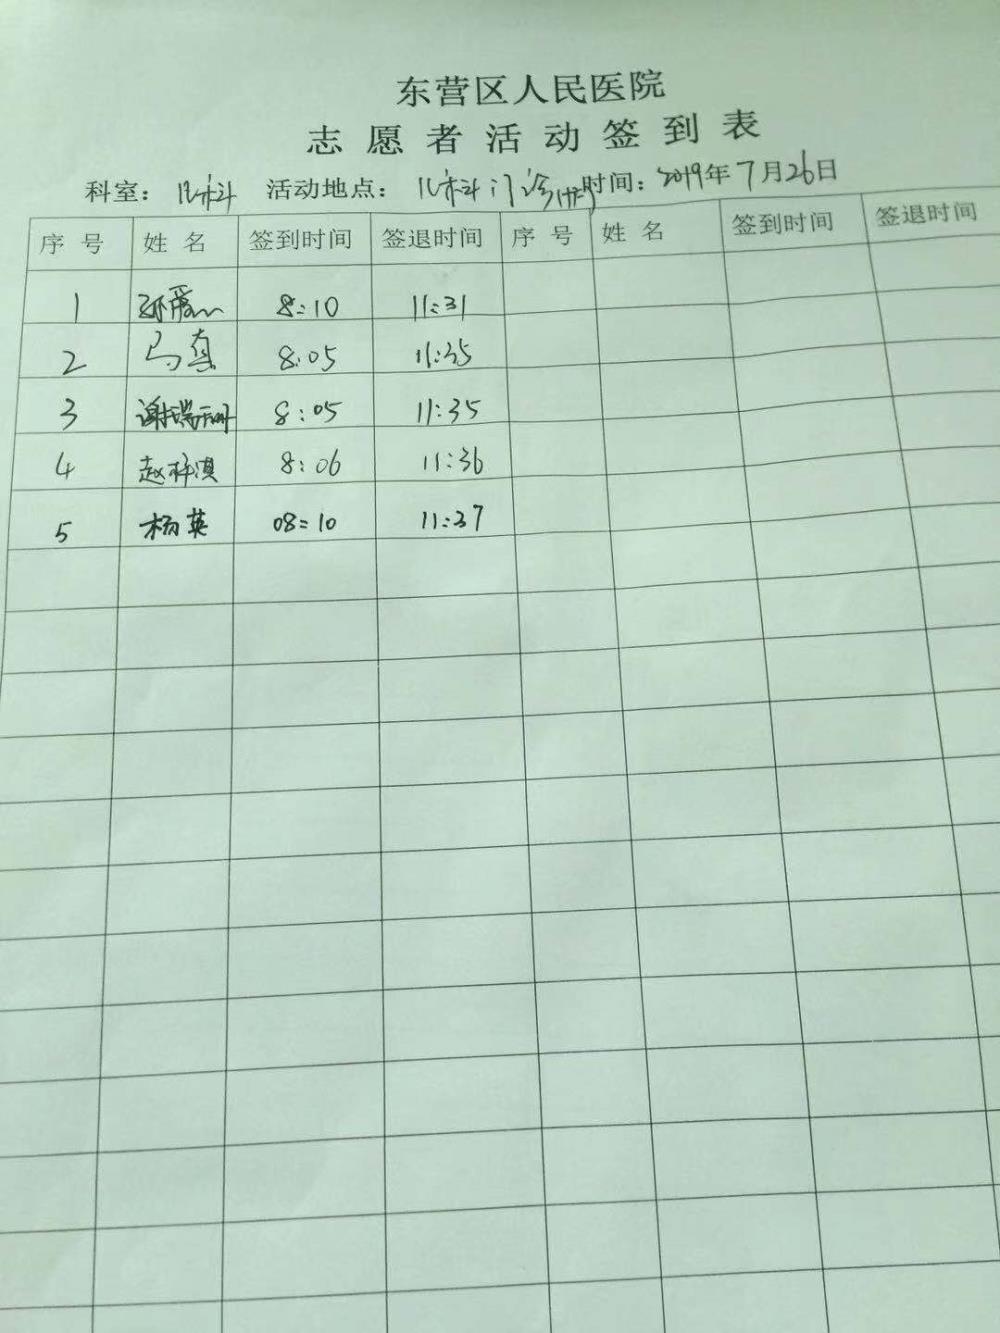 东营区人民医院
志愿者活动签到表
科室：儿科 活动地点：儿科门诊 时间：2019年7月26日
序号 姓名 签到时间 签退时间 序号 姓名 签到时间 签退时间
1 8:10 11:31
2 马真 8:05 11:35
3 谢瑞 8:05 11:35
4 赵梓淇 8:06 11:36
5 杨英 08:10 11:37